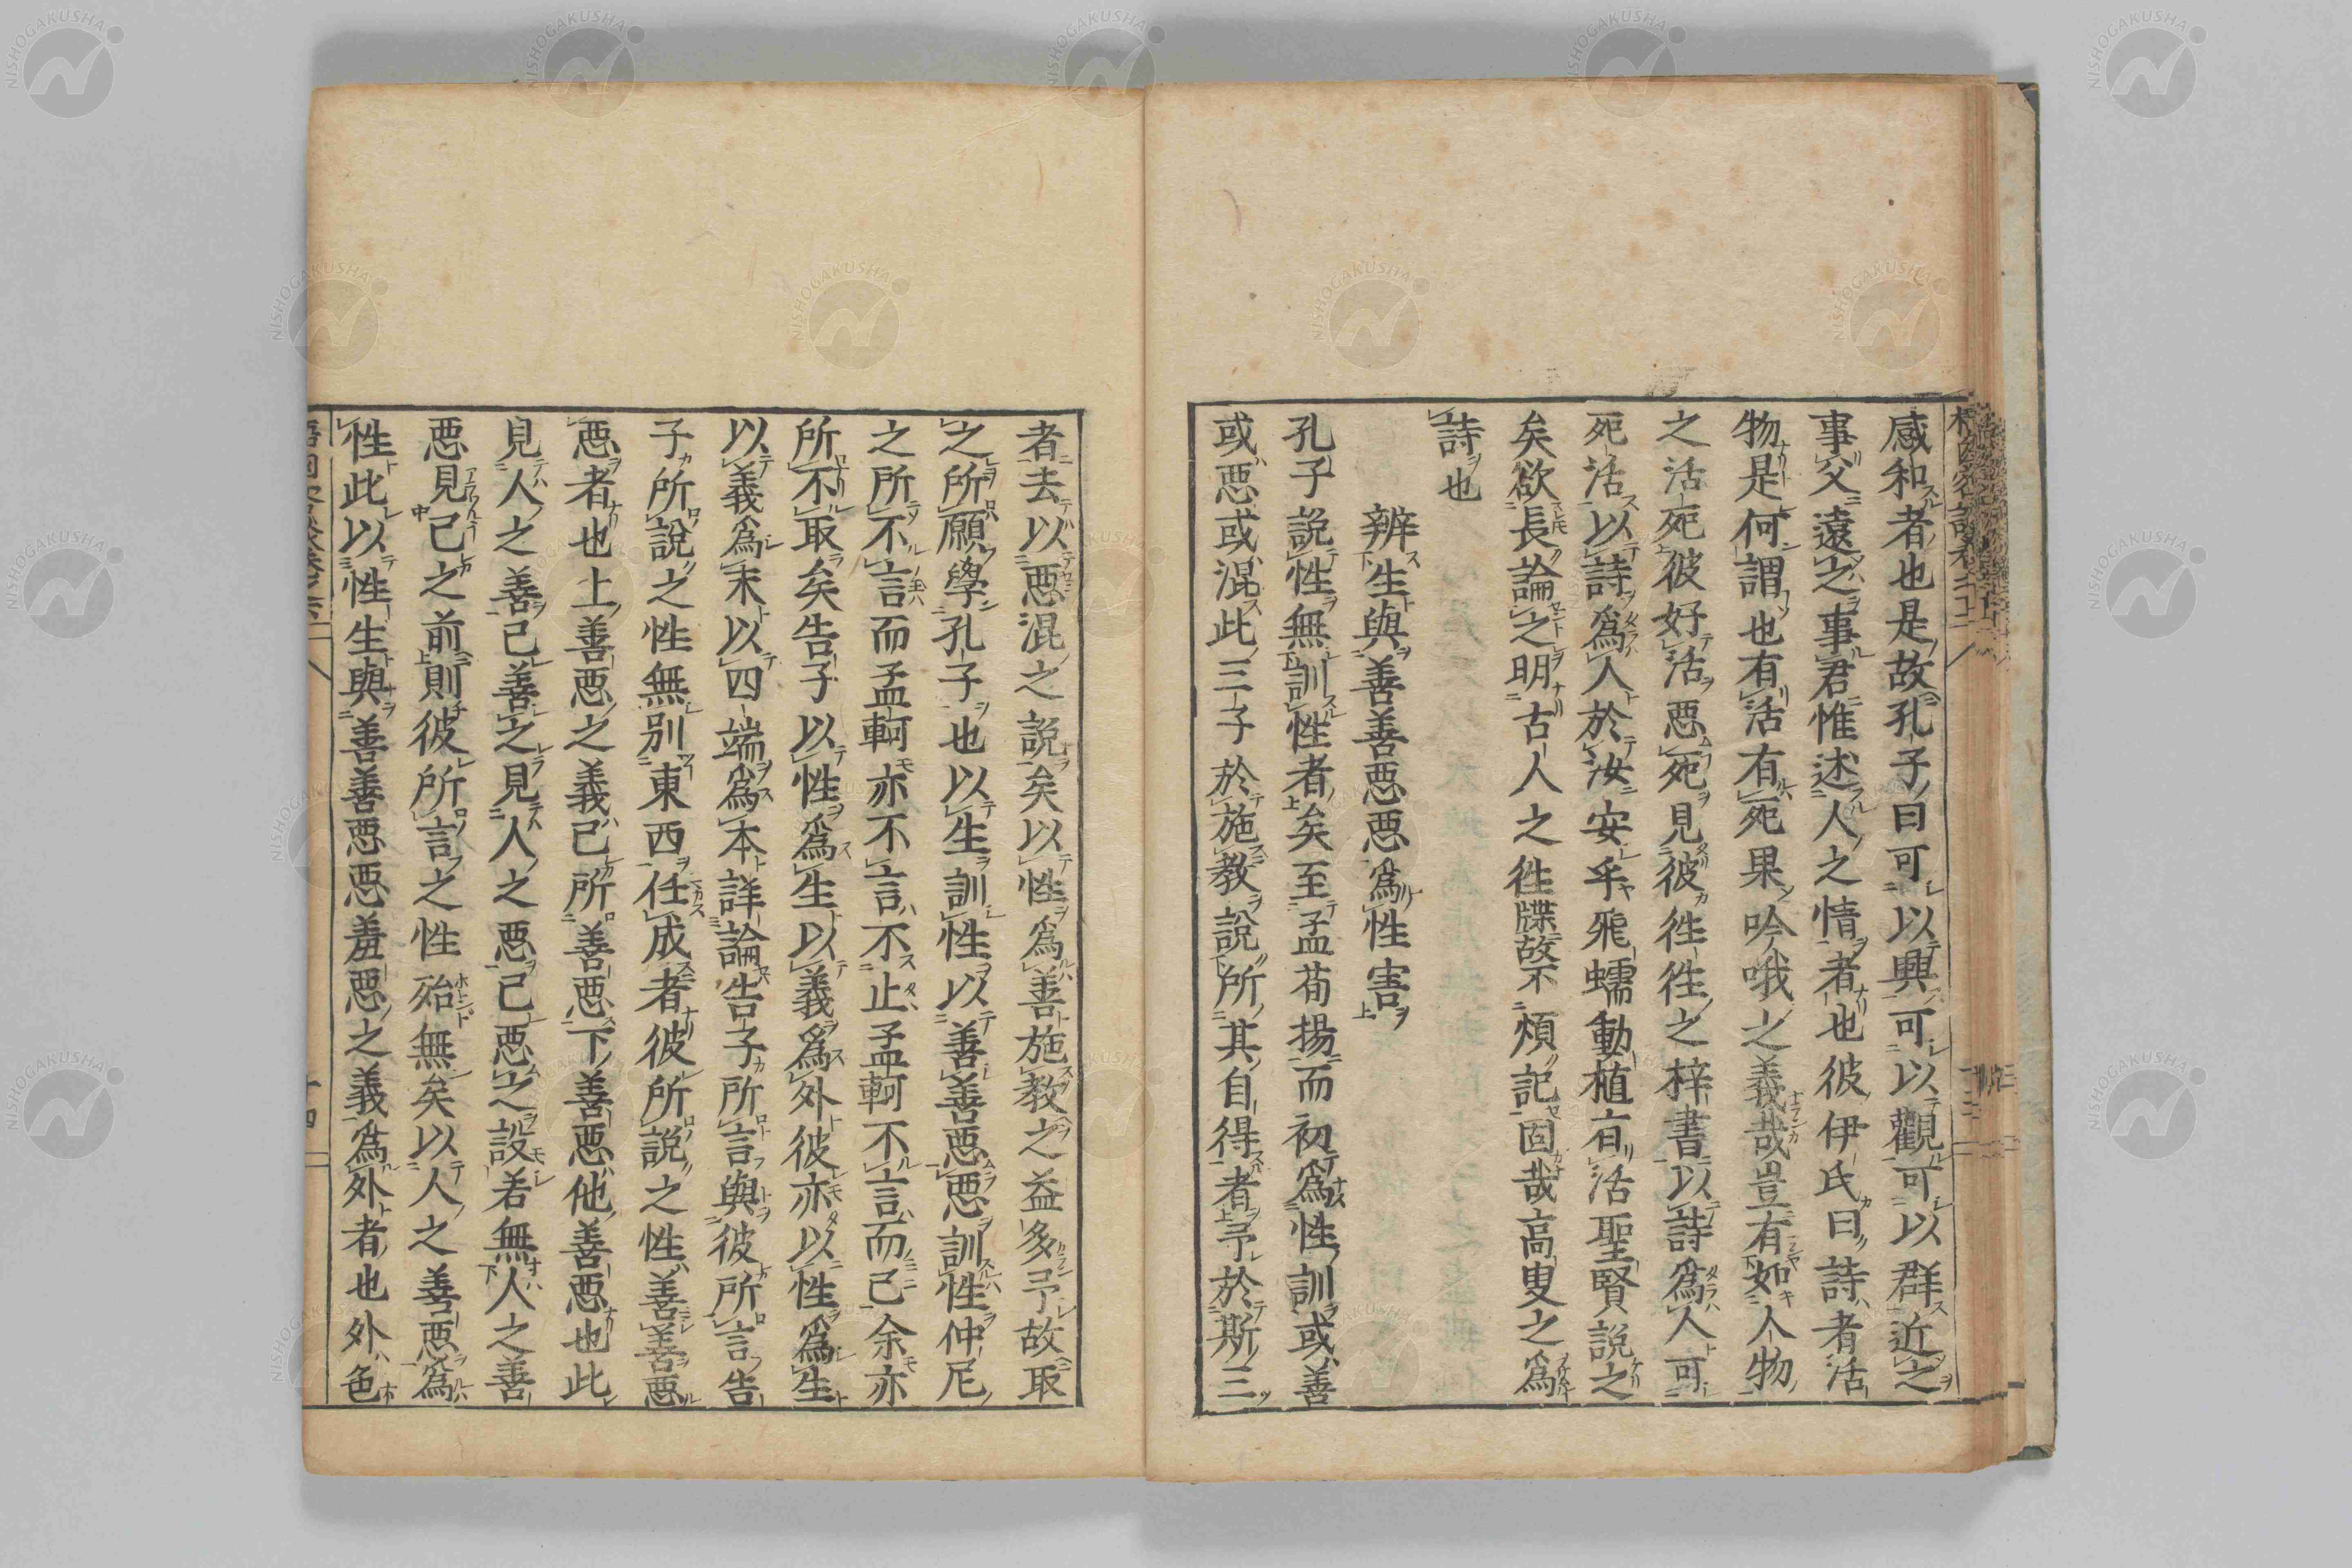 感和者也是故孔子曰可以興可以觀可以群近之
事父遠之事君惟述人之情者也彼伊氏曰詩者活
物是何謂也有活有死果吟哦之義哉豈有如人物
之活死彼好活惡死見彼徃徃之梓書以詩爲人可
死活以詩爲人於汝安乎飛蠕動植有活聖賢說之
矣欲長論之明古人之徃牒故不煩記固哉高叟之爲
詩也
辨生與善善惡惡爲性害
孔子說性無訓性者矣至孟荀揚而初爲性訓或善
或惡或混此三子於施教說所其自得者予於斯三
者去以惡混之說矣以性爲善施教之益多予故取
之所願學孔子也以生訓性以善善惡惡訓性仲尼
之所不言而孟軻亦不言不止孟軻不言而已余亦
所不取矣告子以性爲生以義爲外彼亦以性爲生
以義爲末以四端爲本詳論告子所言與彼所言告
子所說之性無別東西任成者彼所說之性善善惡
惡者也上善惡之義己所善惡下善惡他善惡也此
見人之善己善之見人之惡己惡之設若無人之善
惡見己之前則彼所言之性殆無矣以人之善惡爲
性此以性生與善善惡惡羞惡之義爲外者也外色
NISHOGAKUSHA